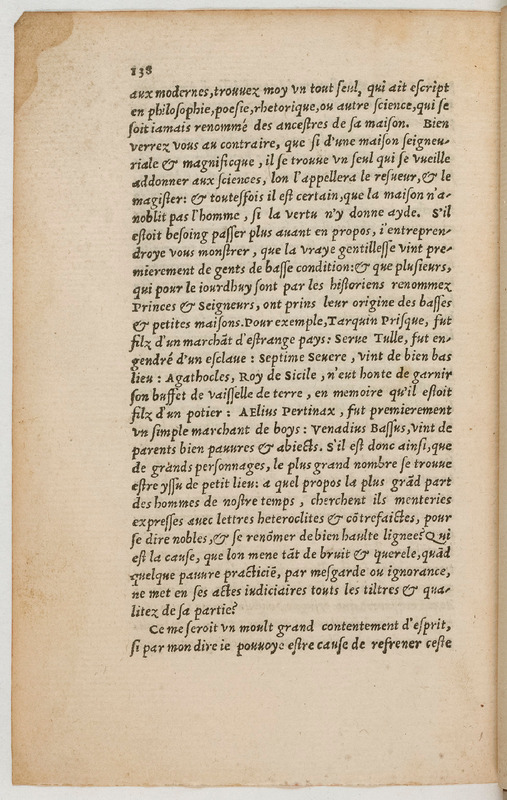 138
aux modernes, trouuez moy vn tout seul, qui ait escript
en philosophie, poesie, rhetorique, ou autre science, qui se
soit iamais renommé des ancestres de sa maison. Bien
verrez vous au contraire, que si d'une maison seigneu-
riale & magnificque, il se trouue vn seul qui se vueille
addonner aux sciences, lon l'appellera le resueur, & le
magister: & toutesfois il est certain, que la maison n'a-
noblit pas l'homme, si la vertu n'y donne ayde. S'il
estoit besoing passer plus auant en propos, i'entrepren-
droye vous monstrer, que la vraye gentillesse vint pre-
mierement de gents de basse condition: & que plusieurs,
qui pour le iourdhuy sont par les historiens renommez
Princes & Seigneurs, ont prins leur origine des basses
& petites maisons. Pour exemple, Tarquin Prisque, fut
filz d'un marchãt d'estrange pays: Serue Tulle, fut en-
gendré d'un esclaue: Septime Seuere, vint de bien bas
lieu: Agathocles, Roy de Sicile, n'eut honte de garnir
son buffet de vaisselle de terre, en memoire qu'il estoit
filz d'un potier: AElius Pertinax, fut premierement
vn simple marchant de boys: Venadius Bassus, vint de
parents bien pauures & abiects. S'il est donc ainsi, que
de grands personnages, le plus grand nombre se trouue
estre yssu de petit lieu: a quel propos la plus grãd part
des hommes de nostre temps, cherchent ils menteries
expresses auec lettres heteroclites & cõtrefaictes, pour
se dire nobles, & se renõmer de bien haulte lignee? Qui
est la cause, que lon mene tãt de bruit & querele, quãd
quelque pauure practiciẽ, par mesgarde ou ignorance,
ne met en ses actes iudiciaires touts les tiltres & qua-
litez de sa partie?
Ce me seroit vn moult grand contentement d'esprit,
si par mon dire ie pouuoye estre cause de refrener ceste